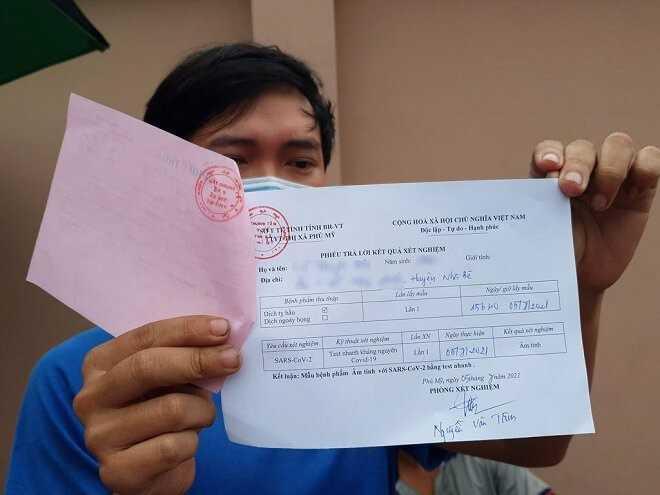 SỞ Y TẾ TỈNH TỈNH BR-VT
TTYT THỊ XÃ PHÚ MỸ
CỘNG HOÀ XÃ HỘI CHỦ NGHĨA VIỆT NAM
Độc lập - Tự do - Hạnh phúc
PHIẾU TRẢ LỜI KẾT QUẢ XÉT NGHIỆM
Họ và tên: Năm sinh: Giới tính:
Địa chỉ: Huyện Nhà Bè
Bệnh phẩm thu thập Lần lấy mẫu Ngày/ giờ lấy mẫu
Dịch tỵ hầu ☑ Lần 1 15h20 05/7/2021
Dịch ngoáy họng ☐
Yêu cầu xét nghiệm Kỹ thuật xét nghiệm Lần XN Ngày thực hiện Kết quả xét nghiệm
SARS-CoV-2 Test nhanh kháng nguyên Covid-19 Lần 1 05/7/2021 Âm tính
Kết luận: Mẫu bệnh phẩm Âm tính với SARS-CoV-2 bằng test nhanh.
Phú Mỹ, ngày 05 tháng 7 năm 2021
PHÒNG XÉT NGHIỆM
Nguyễn Văn